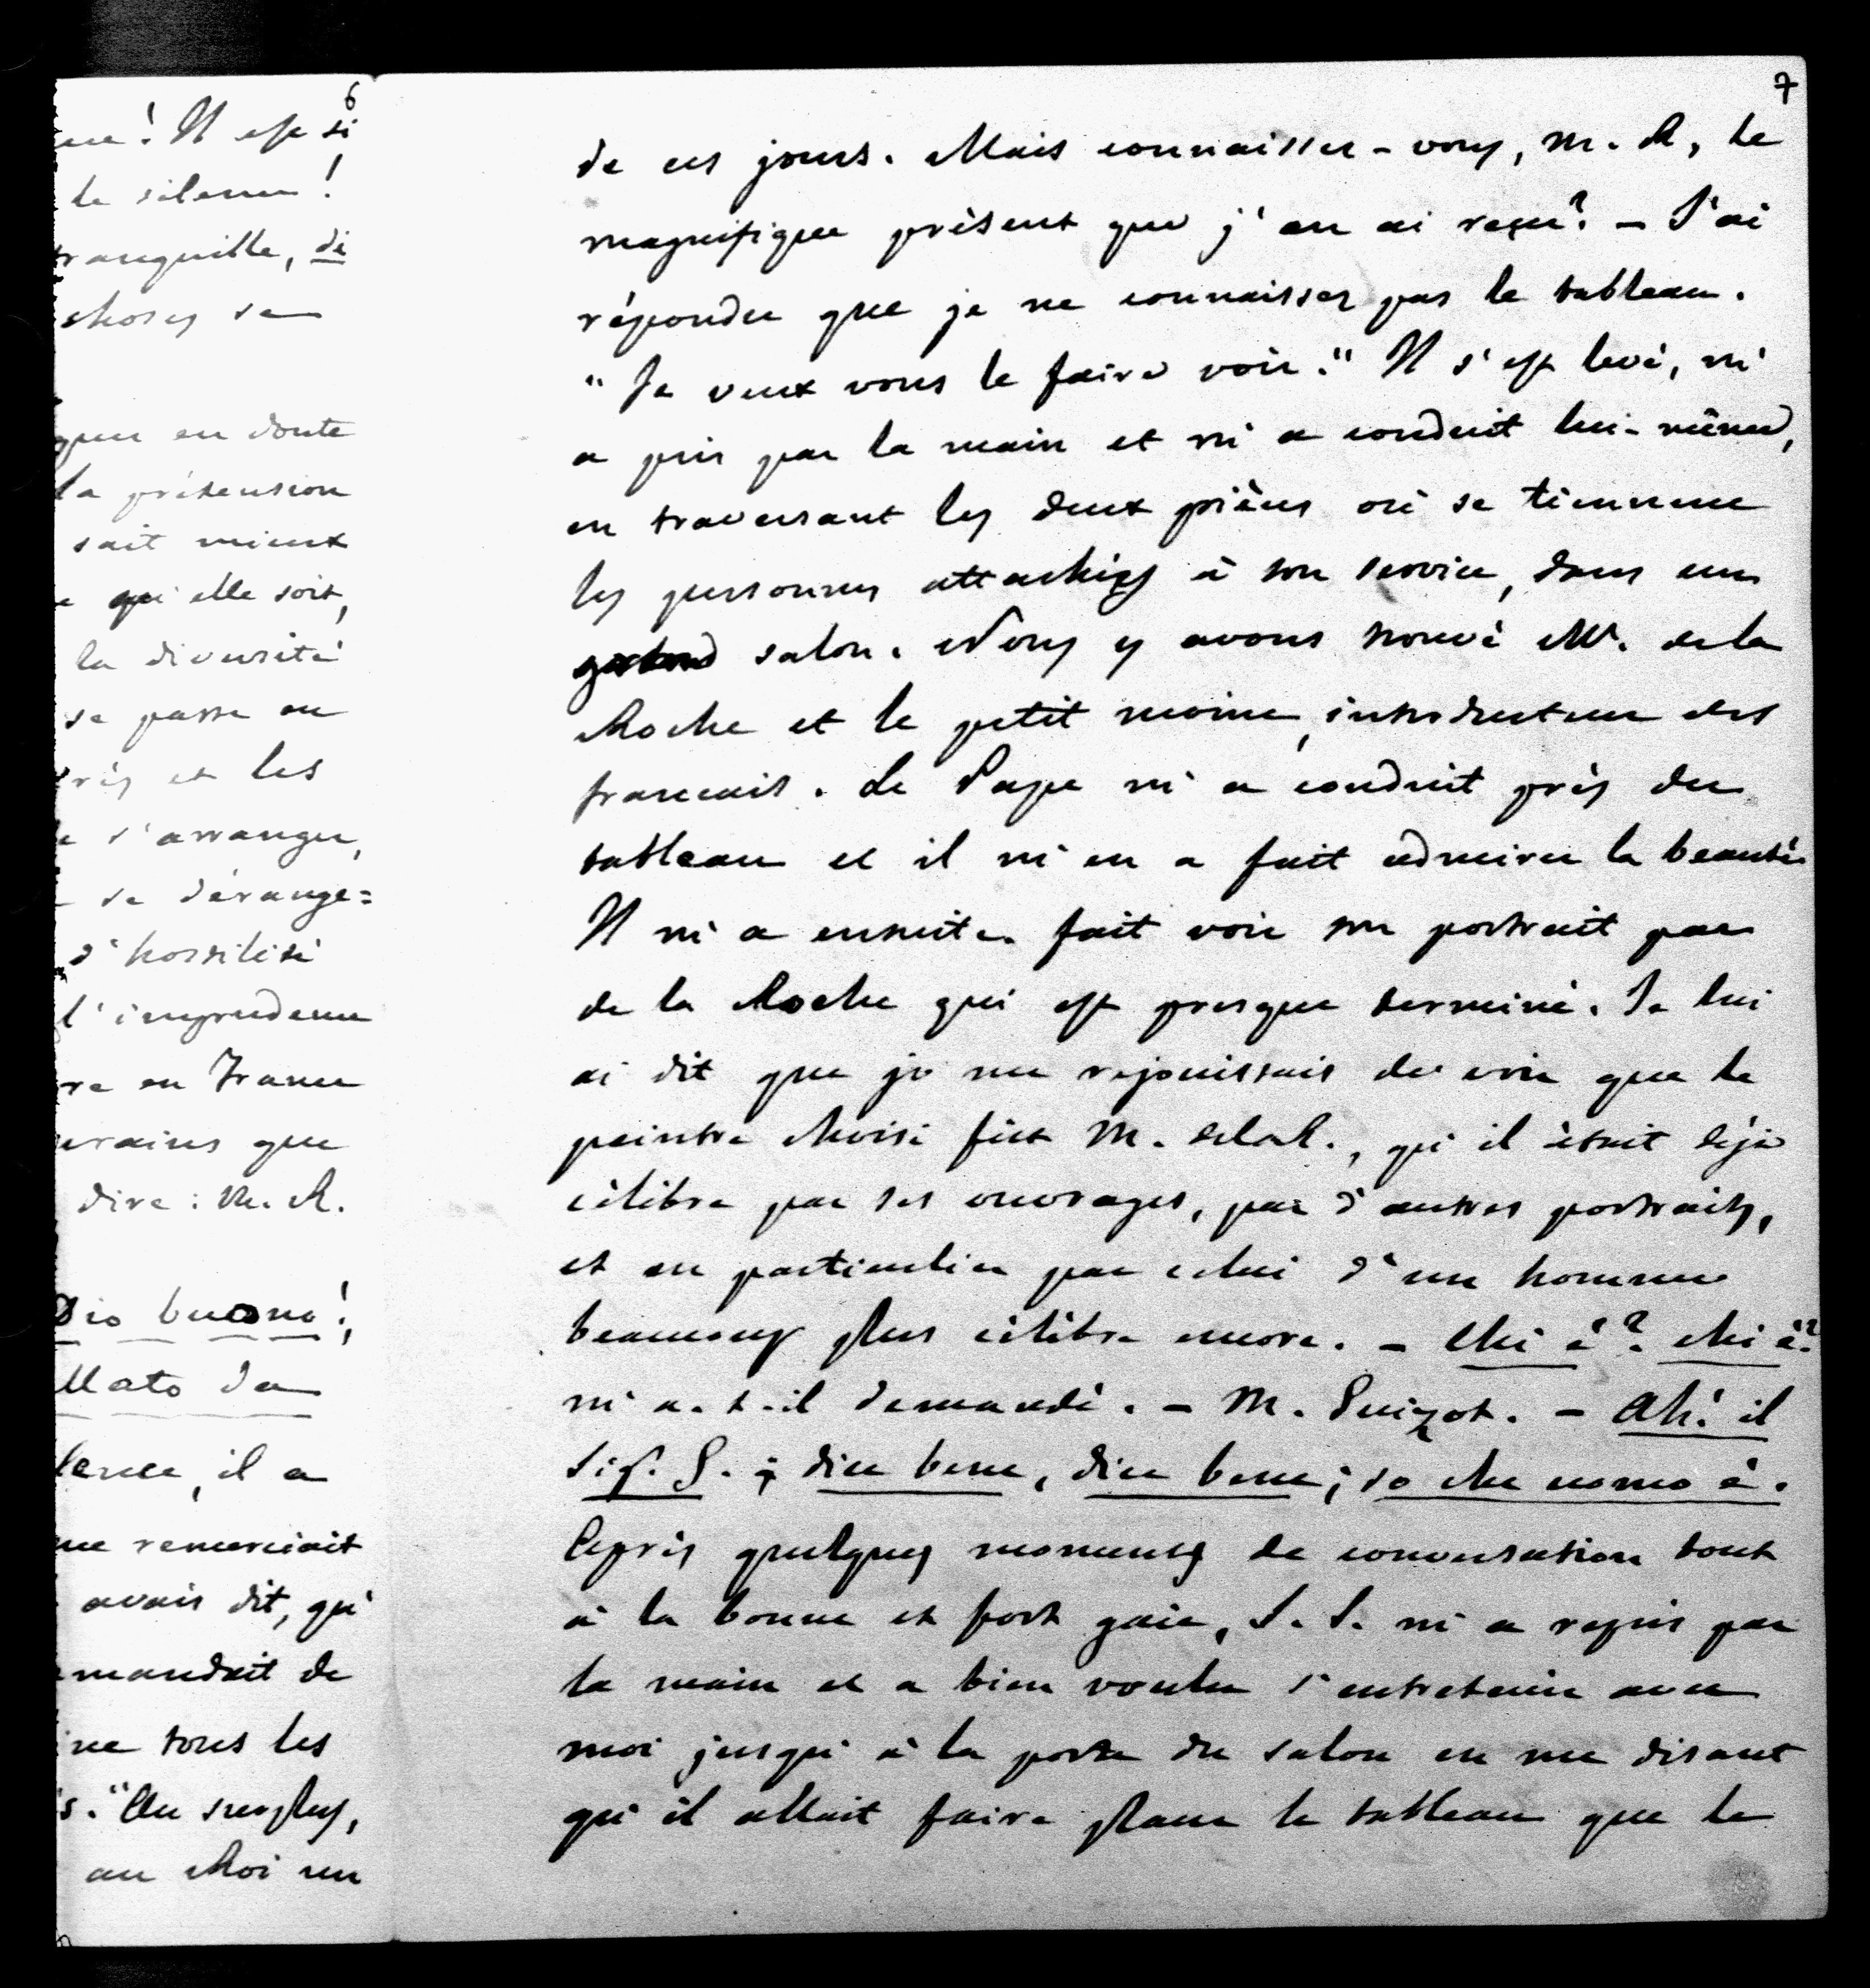 6
ue! Il est si
le silence!
tranquille, di
choses se
quer en doute
la prétension
sait mieux
e qu'elle soit,
la diversité
se passe en
près et les
s'arranger,
se dérange=
d'hostilité
l'imprudence
re en France
erains que
dire: M. R.
Dio buono!,
llato da
lence, il a
me remerciait
avais dit, qu'
mandait de
ine tous les
s. "Au surplus,
au Roi un
7
de ces jours. Mais connaissez-vous, M. R, le
magnifique présent que j'en ai reçu? - J'ai
répondu que je ne connaissez pas le tableau.
"Je veux vous le faire voir." Il s'est levé, m'
a pris par la main et m'a conduit lui-même,
en traversant les deux pièces où se tiennene
les personnes attachées à son service, dans un
grand salon. Nous y avons trouvé M. de la
Roche et le petit moine, introducteur des
francais. Le Pape m'a conduit près du
tableau et il m'en a fait admirer la beauté.
Il m'a ensuite fait voir son portrait par
de la Roche qui est presque terminé. Je lui
ai dit que je me rejouissais de voir que le
peintre choisi fût M. delaR., qu'il était déjà
célèbre par ses ouvrages, par d'autres portraits,
et en particulier par celui d'un homme
beaucoup plus célèbre encore. - Chi è? chi è?
m'a-t-il demandé. - M. Guizot. - Ah! il
Sig. G.; dice bene, dice bene; so che uomo è.
Après quelques moments de conversation tout
à la bonne et fort gaie, S. S. m'a repris par
la main et a bien voulu s'entretenir avec
moi jusqu'à la porte du salon en me disant
qu'il allait faire placer le tableau que le